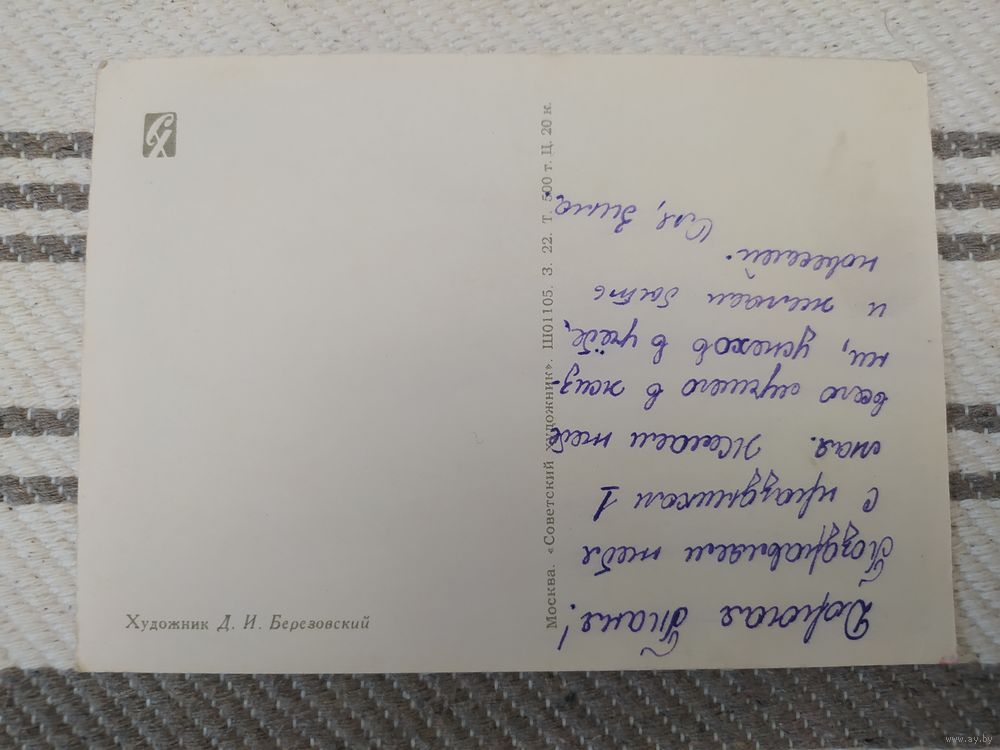 СХ
Художник Д. И. Березовский
Москва. «Советский художник». Ш01105. З. 22. Т. 500 т. Ц. 20 к.
Дорогая Таня!
Поздравляем тебя
с праздником 1
мая. Желаем тебе
всего лучшего в жиз-
ни, успехов в учёбе,
и желаем быть
повеселей.
Оля, Зина.
www.ay.by